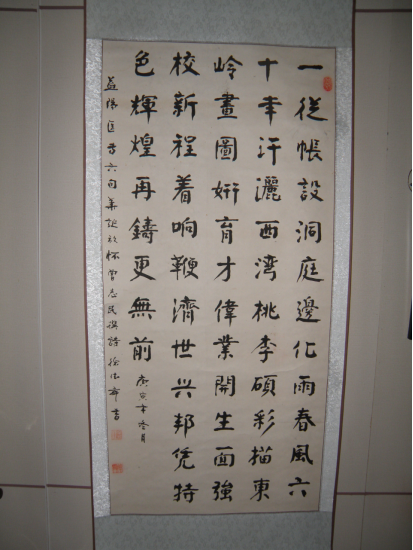 一從帳設洞庭邊化雨春風六
十年汗灑西湾桃李碩彩描東
岭畫圖妍育才偉業開生面強
校新程着响鞭濟世兴邦凭特
色輝煌再鑄更無前
庚寅年冬月
益陽医专六